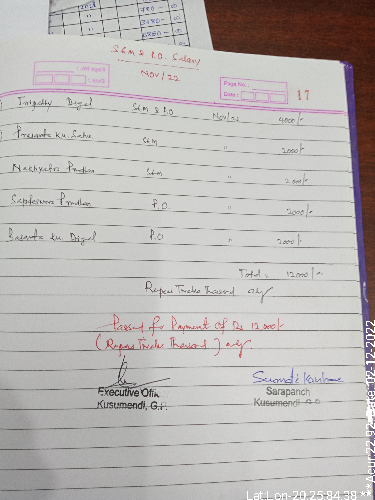 SEM & P.O. Salary
Nov/22
Page No.:
Date:
17
Digal SEM & P.O Nov/22 4000/-
Prasanta Ku. Sahu SEM " 2000/-
Pradhan SEM " 2000/-
Pradhan P.O " 2000/-
Basanta Ku. Digal P.O " 2000/-
Total = 12000/-
Rupees Twelve Thousand only
Passed for Payment of Rs 12000/-
(Rupees Twelve Thousand) only
Executive Offi
Kusumendi, G.P.
Sarapanch
Kusumendi G.P
Lat,Lon-20.25,84.38 ***
Date: 02-12-2022